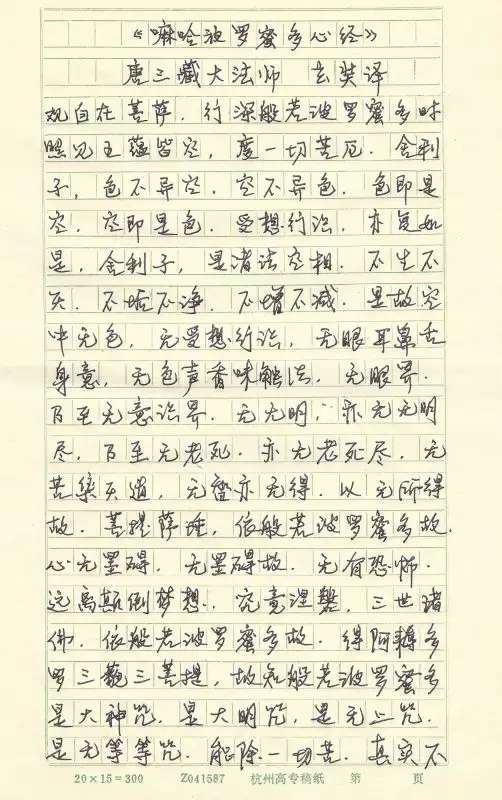 《嘛哈波罗蜜多心经》
唐三藏大法师 玄奘译
观自在菩萨．行深般若波罗蜜多时
照见五蕴皆空，度一切苦厄．舍利
子，色不异空．空不异色．色即是
空．空即是色．受想行识．亦复如
是，舍利子，是诸法空相．不生不
灭．不垢不净．不增不减．是故空
中无色，无受想行识，无眼耳鼻舌
身意，无色声香味触法，无眼界．
乃至无意识界．无无明，亦无无明
尽，乃至无老死．亦无老死尽，无
苦集灭道，无智亦无得．以无所得
故．菩提萨埵，依般若波罗蜜多故．
心无罣碍，无罣碍故．无有恐怖．
远离颠倒梦想．究竟涅槃，三世诸
佛．依般若波罗蜜多故．得阿耨多
罗三藐三菩提，故知般若波罗蜜多
是大神咒．是大明咒，是无上咒．
是无等等咒．能除一切苦．真实不
20×15=300 Z041587 杭州高专稿纸 第 页